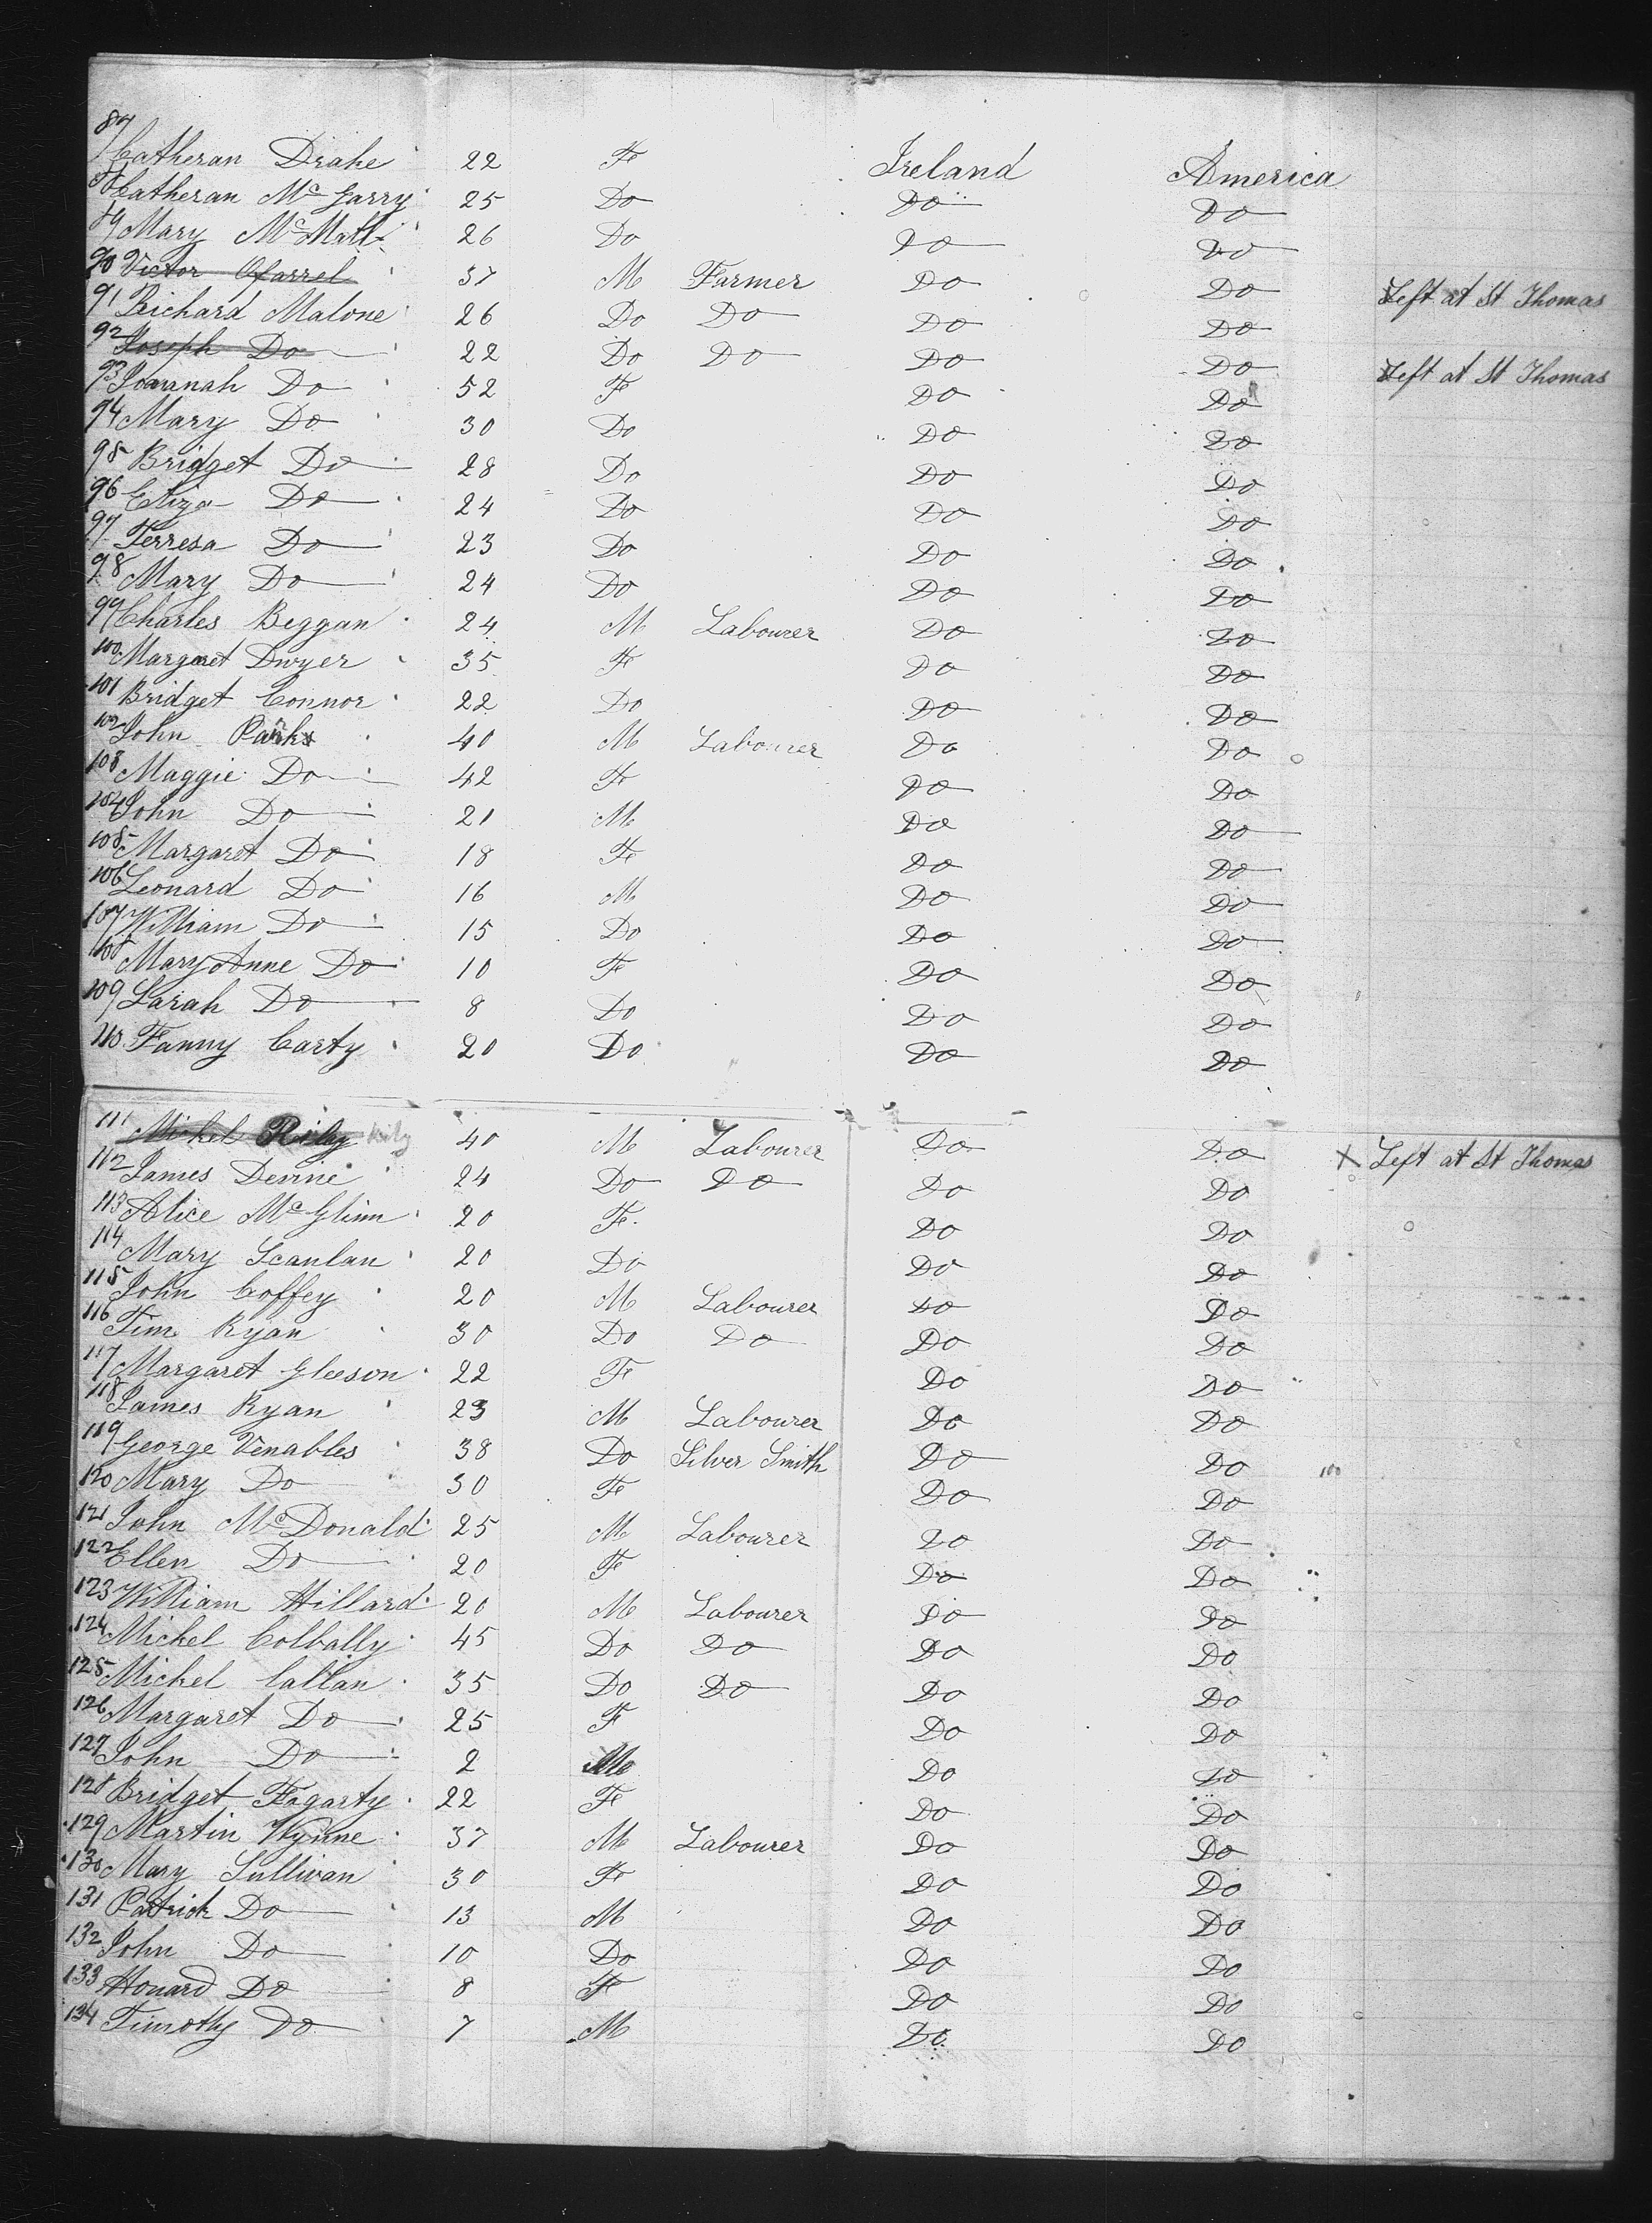 87 Catheran Drake 22 Fe Ireland America
88 Catheran Mc Garry 25 Do Do Do
89 Mary Mc Mall 26 Do Do Do
90 Victor Ofarrel 37 M Farmer Do Do Left at St Thomas
91 Richard Malone 26 Do Do Do Do
92 Joseph Do 22 Do Do Do Do Left at St Thomas
93 Joannah Do 52 Fe Do Do
94 Mary Do 30 Do Do Do
95 Bridget Do 28 Do Do Do
96 Eliza Do 24 Do Do Do
97 Terresa Do 23 Do Do Do
98 Mary Do 24 Do Do Do
99 Charles Beggan 24 M Labourer Do Do
100 Margaret Dwyer 35 Fe Do Do
101 Bridget Connor 22 Do Do Do
102 John Parks 40 M Labourer Do Do
103 Maggie Do 42 Fe Do Do
104 John Do 21 M Do Do
105 Margaret Do 18 Fe Do Do
106 Leonard Do 16 M Do Do
107 William Do 15 Do Do Do
108 Mary Anne Do 10 Fe Do Do
109 Sarah Do 8 Do Do Do
110 Fanny Carty 20 Do Do Do
111 Michel Riley 40 M Labourer Do Do X Left at St Thomas
112 James Devine 24 Do Do Do Do
113 Alice Mc Glinn 20 Fe Do Do
114 Mary Scanlan 20 Do Do Do
115 John Coffey 20 M Labourer Do Do
116 Tim Ryan 30 Do Do Do Do
117 Margaret Gleeson 22 Fe Do Do
118 James Ryan 23 M Labourer Do Do
119 George Venables 38 Do Silver Smith Do Do
120 Mary Do 30 Fe Do Do
121 John Mc Donald 25 M Labourer Do Do
122 Ellen Do 20 Fe Do Do
123 William Hillard 20 M Labourer Do Do
124 Michel Colbally 45 Do Do Do Do
125 Michel Callan 35 Do Do Do Do
126 Margaret Do 25 F Do Do
127 John Do 2 M Do Do
128 Bridget Fogarty 22 Fe Do Do
129 Martin Wynne 37 M Labourer Do Do
130 Mary Sullivan 30 Fe Do Do
131 Patrick Do 13 M Do Do
132 John Do 10 Do Do Do
133 Honard Do 8 F Do Do
134 Timothy Do 7 M Do Do